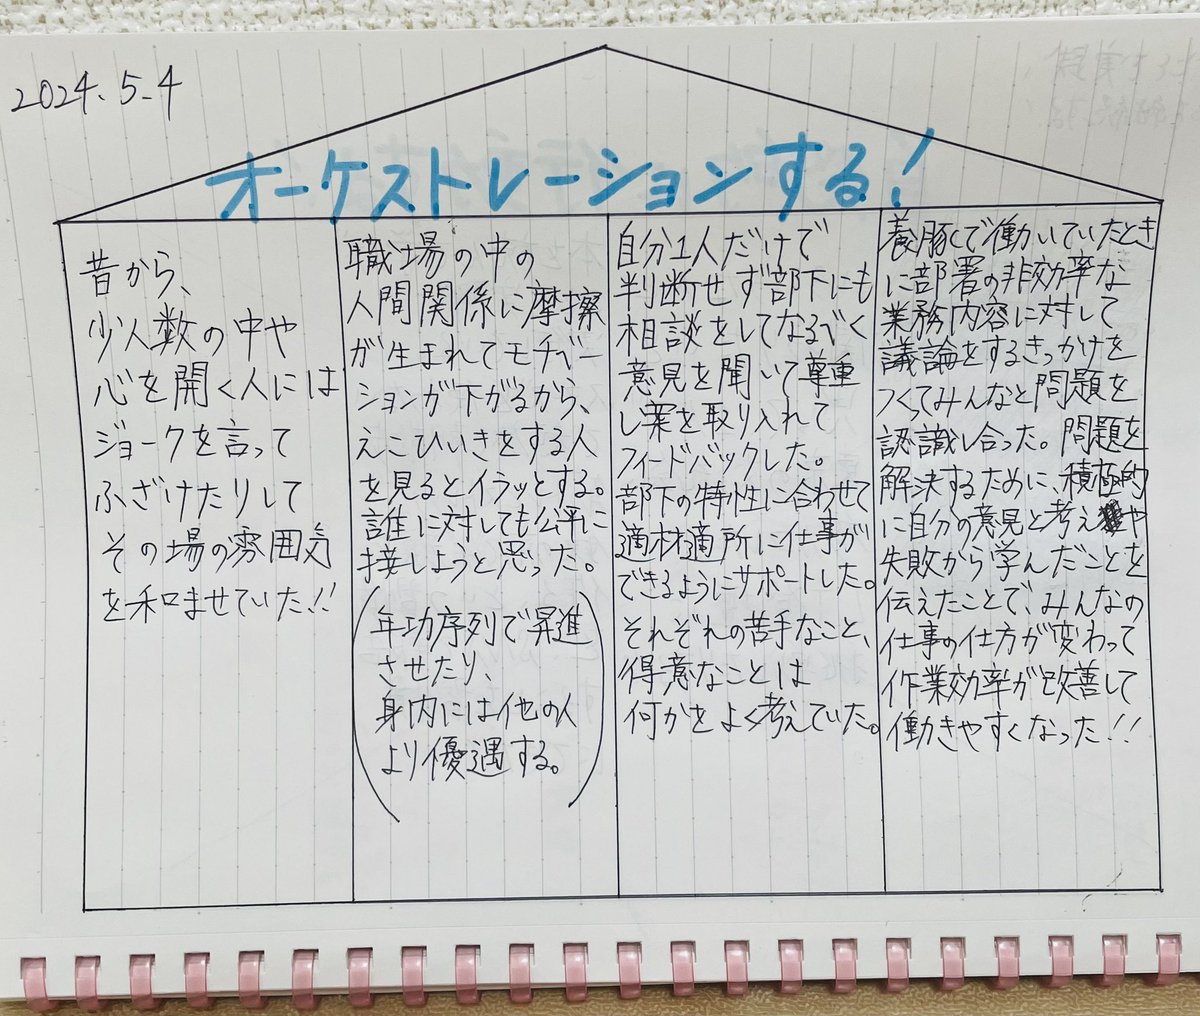 2024.5.4
オーケストレーションする!
昔から、
少人数の中や
心を開く人には
ジョークを言って
ふざけたりして
その場の雰囲気
を和ませていた!!
職場の中の
人間関係に摩擦
が生まれてモチベー
ションが下がるから、
えこひいきをする人
を見るとイラッとする。
誰に対しても公平に
接しようと思った。
年功序列で昇進
させたり、
身内には他の人
より優遇する。
自分1人だけで
判断せず部下にも
相談をしてなるべく
意見を聞いて尊重
し案を取り入れて
フィードバックした。
部下の特性に合わせて
適材適所に仕事が
できるようにサポートした。
それぞれの苦手なこと、
得意なことは
何かをよく考えていた。
養豚で働いていたとき
に部署の非効率な
業務内容に対して
議論をするきっかけを
つくってみんなと問題を
認識し合った。問題を
解決するために、積極的
に自分の意見と考えや
失敗から学んだことを
伝えたことで、みんなの
仕事の仕方が変わって
作業効率が改善して
働きやすくなった!!